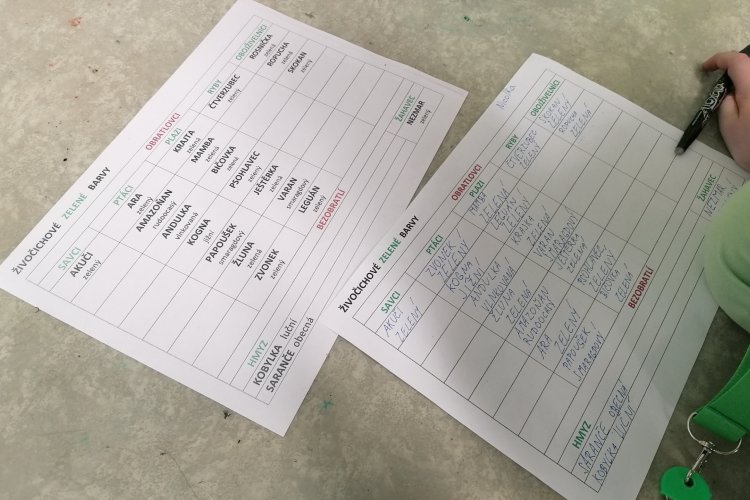 ŽIVOČICHOVÉ ZELENÉ BARVY
OBRATLOVCI
SAVCI
AKUČI
zelený
PTÁCI
ARA
zelený
AMAZOŇAN
rudoocasý
ANDULKA
vlnkovaná
KOGNA
jižní
PAPOUŠEK
smaragdový
ŽLUNA
zelená
ZVONEK
zelený
PLAZI
KRAJTA
zelená
MAMBA
zelená
BIČOVKA
zelená
PSOHLAVEC
zelený
JEŠTĚRKA
zelená
VARAN
smaragdový
LEGUÁN
zelený
RYBY
ČTVERZUBEC
zelený
OBOJŽIVELNICI
ROSNIČKA
zelená
ROPUCHA
zelená
SKOKAN
zelený
BEZOBRATLÍ
HMYZ
KOBYLKA luční
SARANČE obecná
ŽAHAVEC
NEZMAR
zelený
ŽIVOČICHOVÉ ZELENÉ BARVY
OBRATLOVCI
SAVCI
AKUČI
ZELENÝ
PTÁCI
ZVONEK
ZELENÝ
KOGNA
JIŽNÍ
ANDULKA
VLNKOVANÁ
ŽLUNA
ZELENÁ
AMAZOŇAN
RUDOOCASÝ
ARA
ZELENÝ
PAPOUŠEK
SMARAGDOVÝ
PLAZI
MAMBA
ZELENÁ
ZELENÝ
KRAJTA
ZELENÁ
VARAN
SMARAGDOVÝ
JEŠTĚRKA
ZELENÁ
ZELENÝ
BIČOVKA
ZELENÁ
RYBY
ČTVERZUBEC
ZELENÝ
OBOJŽIVELNICI
SKOKAN
ZELENÝ
ROPUCHA
ZELENÁ
BEZOBRATLÍ
HMYZ
SARANČE OBECNÁ
KOBYLKA LUČNÍ
ŽAHAVEC
NEZMAR
ZELENÝ